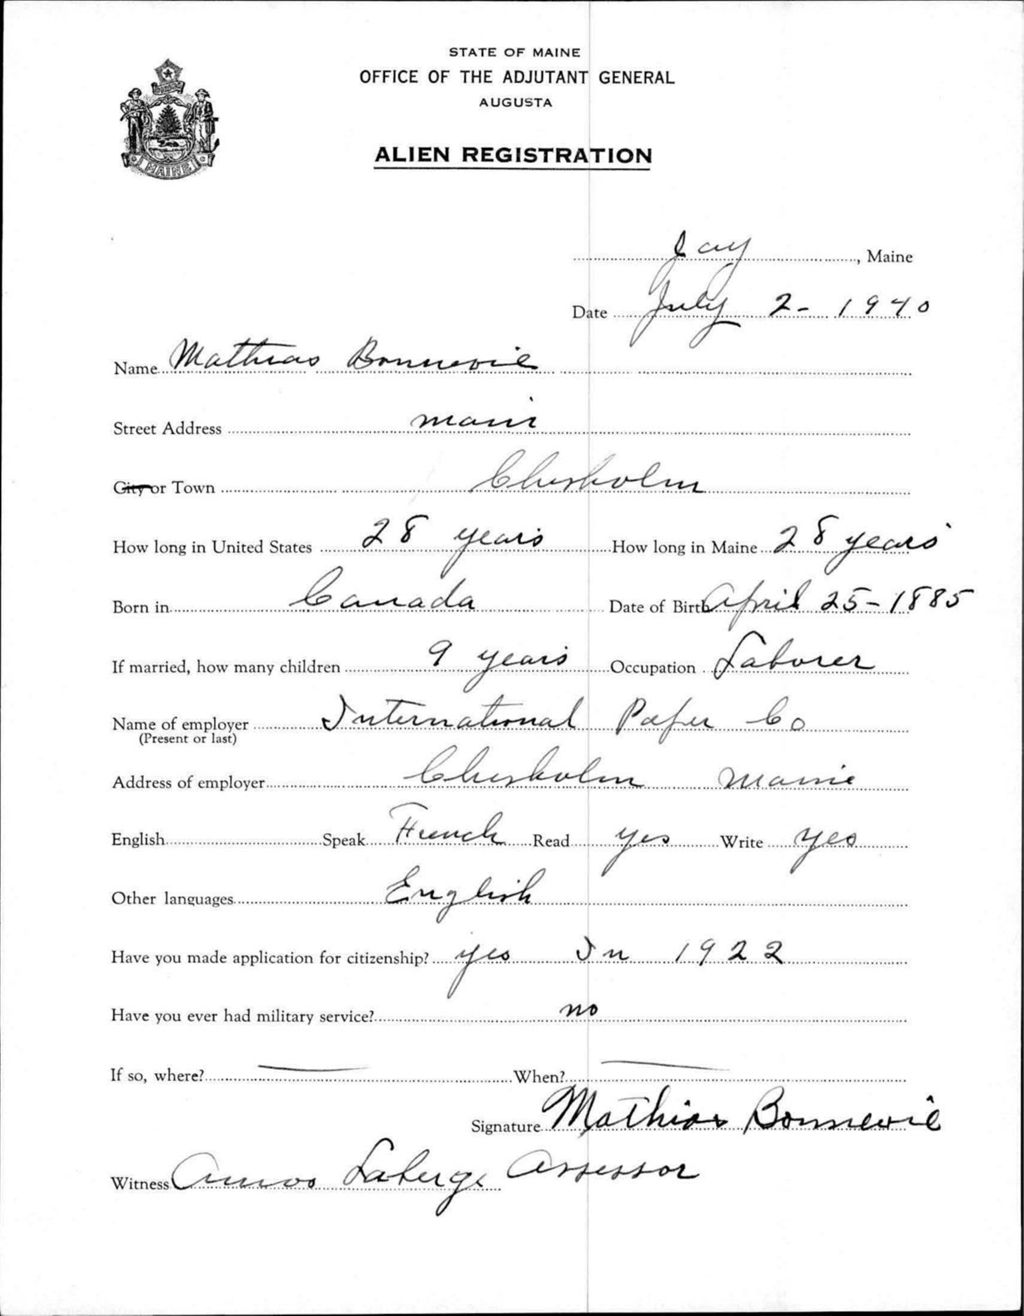 STATE OF MAINE
OFFICE OF THE ADJUTANT GENERAL
AUGUSTA
ALIEN REGISTRATION
MAINE
Jay, Maine
Date July 2 - 1940
Name Mathias Bonnevie
Street Address main
City or Town Chesholm
How long in United States 28 years How long in Maine 28 years
Born in Canada Date of Birth April 25-1885
If married, how many children 9 years Occupation Laborer
Name of employer International Paper Co
(Present or last)
Address of employer Chesholm Maine
English Speak French Read yes Write yes
Other languages English
Have you made application for citizenship? yes In 1922
Have you ever had military service? no
If so, where? When?
Signature Mathias Bonnevie
Witness Amos Laberge Assessor